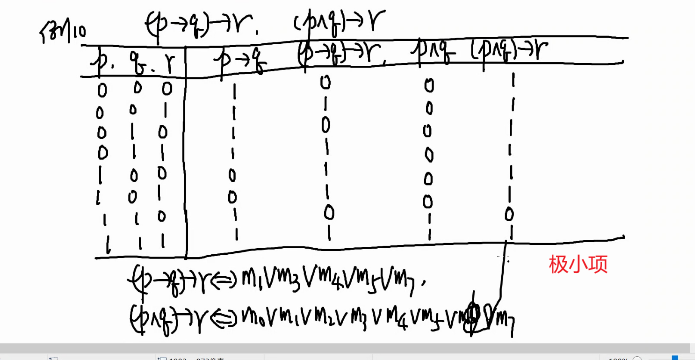 例10 (p→q)→r, (p∧q)→r
p. q. r p→q (p→q)→r, p∧q (p∧q)→r
0 0 0 1 0 0 1
0 0 1 1 1 0 1
0 1 0 1 0 0 1
0 1 1 1 1 0 1
1 0 0 0 1 0 1
1 0 1 0 1 0 1
1 1 0 1 0 1 0
1 1 1 1 1 1 1
极小项
(p→q)→r⇔m1∨m3∨m4∨m5∨m7,
(p∧q)→r⇔m0∨m1∨m2∨m3∨m4∨m5∨m7